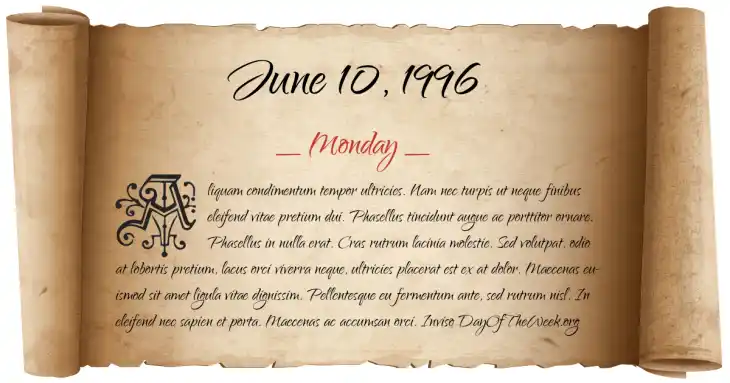 June 10, 1996
_ Monday _
Aliquam condimentum tempor ultricies. Nam nec turpis ut neque finibus
eleifend vitae pretium dui. Phasellus tincidunt augue ac porttitor ornare.
Phasellus in nulla erat. Cras rutrum lacinia molestie. Sed volutpat, odio
at lobortis pretium, lacus orci viverra neque, ultricies placerat est ex at dolor. Maecenas eu-
ismod sit amet ligula vitae dignissim. Pellentesque eu fermentum ante, sed rutrum nisl. In
eleifend nec sapien et porta. Maecenas ac accumsan orci. Inviso DayOfTheWeek.org